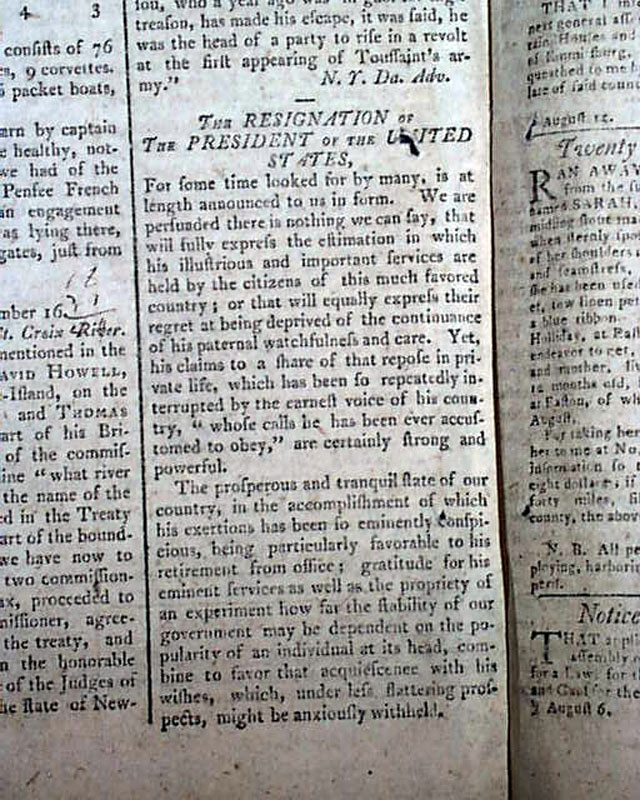 4 3
consists of 76
s, 9 corvettes.
packet boats,
arn by captain
e healthy, not-
we had of the
Penfee French
an engagement
as lying there,
gates, just from
mber 16
St. Croix River.
mentioned in the
AVID HOWELL,
-Island, on the
and THOMAS
art of his Bri-
of the commis-
ine "what river
the name of the
ed in the Treaty
art of the bound-
we have now to
two commission-
ax, proceeded to
missioner, agree-
the treaty, and
n the honorable
of the Judges of
he state of New-
treason, has made his escape, it was said, he
was the head of a party to rise in a revolt
at the first appearing of Toussaint's ar-
my." N. Y. Da. Adv.
THE RESIGNATION OF
THE PRESIDENT OF THE UNITED
STATES,
For some time looked for by many, is at
length announced to us in form. We are
persuaded there is nothing we can say, that
will fully express the estimation in which
his illustrious and important services are
held by the citizens of this much favored
country; or that will equally express their
regret at being deprived of the continuance
of his paternal watchfulness and care. Yet,
his claims to a share of that repose in pri-
vate life, which has been so repeatedly in-
terrupted by the earnest voice of his coun-
try, "whose calls he has been ever accus-
tomed to obey," are certainly strong and
powerful.
The prosperous and tranquil state of our
country, in the accomplishment of which
his exertions has been so eminently conspi-
cious, being particularly favorable to his
retirement from office; gratitude for his
eminent services as well as the propriety of
an experiment how far the stability of our
government may be dependent on the po-
pularity of an individual at its head, com-
bine to favor that acquiescence with his
wishes, which, under less flattering pros-
pects, might be anxiously withheld.
THAT I
next general ass
August 12.
Twenty
RAN AWAY
from the
SARAH,
midling stout
when sternly
of her shoulders
and seamstress,
she has been used
et, tow linen
a blue ribbon.
Holliday, at
endeavor to get
and mother,
12 months old,
at Easton, of
August.
For taking her
her to me at No.
information so
eight dollars; if
forty miles,
county, the above
N. B. All
ploying, harboring
peril.
Notice
THAT
assembly
for a Law, for
and for the
August 6.